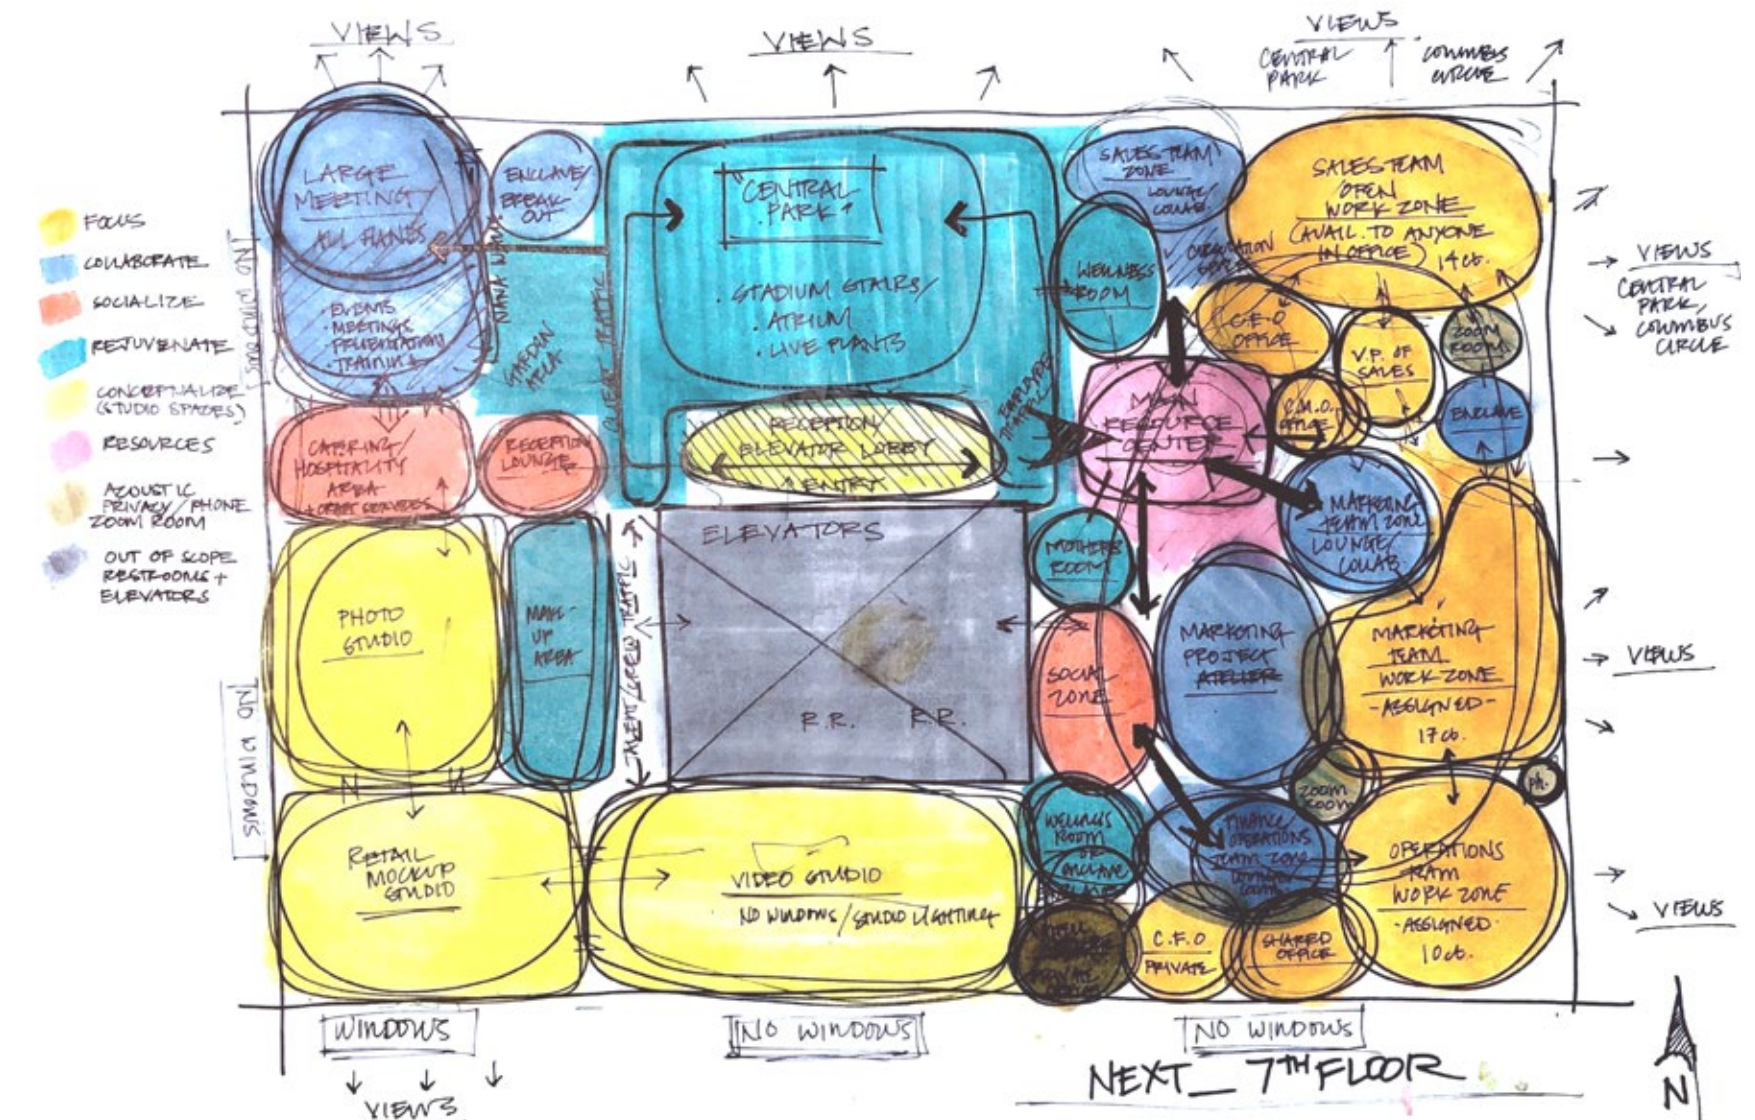 VIEWS
VIEWS
VIEWS
CENTRAL
PARK
COLUMBUS
CIRCLE
FOCUS
COLLABORATE
SOCIALIZE
REJUVENATE
CONCEPTUALIZE
(STUDIO SPACES)
RESOURCES
ACOUSTIC
PRIVACY/PHONE
ZOOM ROOM
OUT OF SCOPE
RESTROOMS +
ELEVATORS
NO WINDOWS
NO WINDOWS
LARGE
MEETING/
ALL HANDS
• EVENTS
• MEETINGS
• PRESENTATIONS
• TRAINING
ENCLAVE/
BREAK
OUT
NANA WALL
GARDEN
AREA
CLIENT TRAFFIC
"CENTRAL
PARK"
• STADIUM STAIRS/
• ATRIUM
• LIVE PLANTS
RECEPTION/
ELEVATOR LOBBY
ENTRY
CATERING/
HOSPITALITY
AREA
+ CRAFT SERVICES
RECEPTION
LOUNGE
PHOTO
STUDIO
MAKE-
UP
AREA
TALENT/CREW TRAFFIC
ELEVATORS
R.R. R.R.
RETAIL
MOCKUP
STUDIO
VIDEO STUDIO
NO WINDOWS/STUDIO LIGHTING
SALES TEAM
ZONE
LOUNGE/
COLLAB.
WELLNESS
ROOM
SALES TEAM
OPEN
WORK ZONE
(AVAIL. TO ANYONE
IN OFFICE) 14 ct.
C.E.O
OFFICE
V.P. OF
SALES
ZOOM
ROOM
C.M.O.
OFFICE
ENCLAVE
MAIN
RESOURCE
CENTER
MARKETING
TEAM ZONE
LOUNGE/
COLLAB.
MOTHERS
ROOM
SOCIAL
ZONE
MARKETING
PROJECT
ATELIER
MARKETING
TEAM
WORK ZONE
-ASSIGNED-
17 ct.
ZOOM
ROOM
ph.
WELLNESS
ROOM
OR
ENCLAVE
FINANCE/
OPERATIONS
TEAM ZONE
OPERATIONS
TEAM
WORK ZONE
-ASSIGNED-
10 ct.
C.F.O
PRIVATE
SHARED
OFFICE
VIEWS
CENTRAL
PARK,
COLUMBUS
CIRCLE
VIEWS
VIEWS
WINDOWS
VIEWS
NO WINDOWS
NO WINDOWS
NEXT_ 7TH FLOOR
N